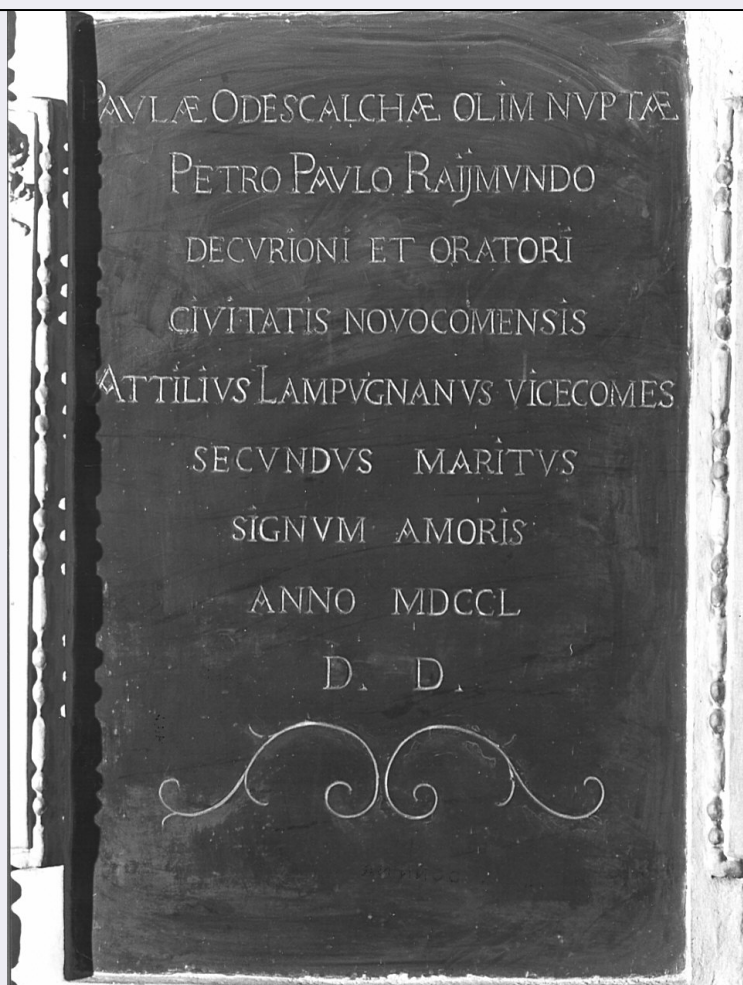 PAVLÆ ODESCALCHÆ OLIM NVPTÆ
PETRO PAVLO RAIJMVNDO
DECVRIONI ET ORATORI
CIVITATIS NOVOCOMENSIS
ATTILIVS LAMPVGNANVS VICECOMES
SECVNDVS MARITVS
SIGNVM AMORIS
ANNO MDCCL
D. D.